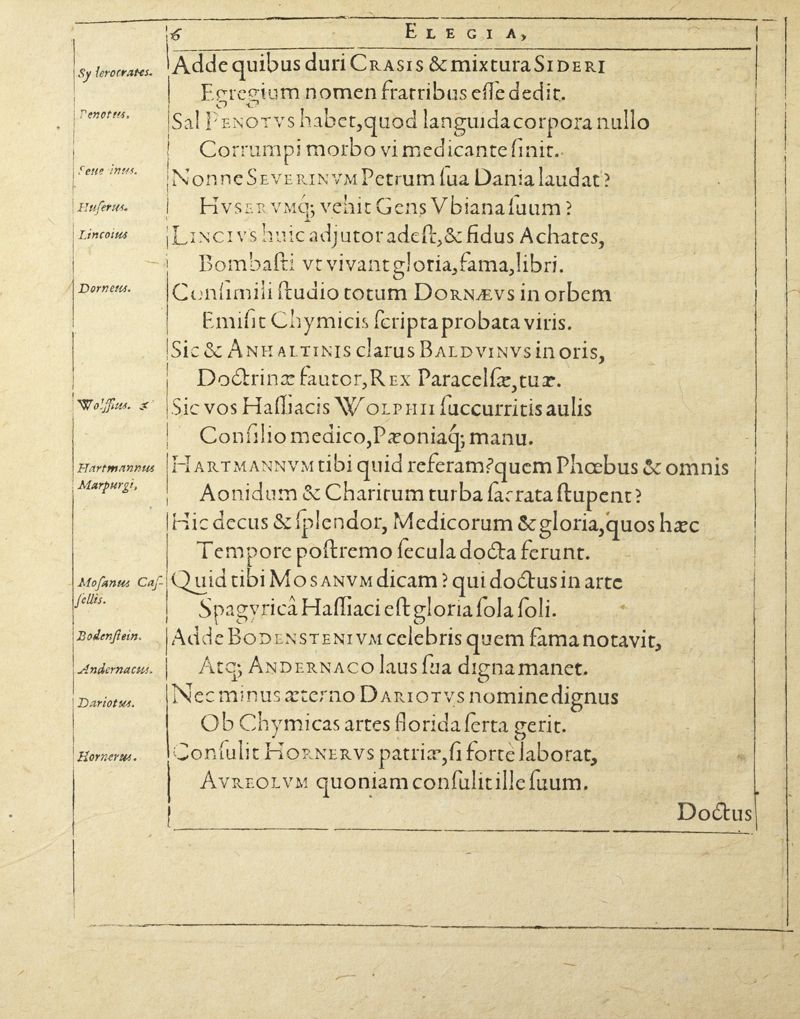 6
ELEGIA,
Sy ierocrates.
Adde quibus duri CRASIS & mixtura SIDERI
Egregium nomen fratribus eſſe dedit.
Penottus.
Sal PENOTVS habet, quod languida corpora nullo
Corrumpi morbo vi medicante ſinit.
Seue inus.
Nonne SEVERINVM Petrum ſua Dania laudat?
Huſerus.
HVSERVMq; vehit Gens Vbiana ſuum?
Lincoius
LINCIVS huic adjutor adeſt, & fidus Achates,
Bombaſti vt vivant gloria, fama, libri.
Dorneus.
Conſimili ſtudio totum DORNÆVS in orbem
Emiſit Chymicis ſcripta probata viris.
Sic & ANHALTINIS clarus BALDVINVS in oris,
Doctrinæ fautor, REX Paracelſæ, tuæ.
Wolffius.
Sic vos Haſſiacis WOLPHII ſuccurritis aulis
Conſilio medico, Pæoniaq; manu.
Hartmannus
Marpurgi,
HARTMANNVM tibi quid referam? quem Phœbus & omnis
Aonidum & Charitum turba ſacrata ſtupent?
Hic decus & ſplendor, Medicorum & gloria, quos hæc
Tempore poſtremo ſecula docta ferunt.
Moſanus Caſ-
ſellis.
Quid tibi MOSANVM dicam? qui doctus in arte
Spagyricâ Haſſiaci eſt gloria ſola ſoli.
Bodenſtein.
Adde BODENSTENIVM celebris quem fama notavit,
Andernacus.
Atq; ANDERNACO laus ſua digna manet.
Dariotus.
Nec minus æterno DARIOTVS nomine dignus
Ob Chymicas artes florida ſerta gerit.
Hornerus.
Conſulit HORNERVS patriæ, ſi fortè laborat,
AVREOLVM quoniam conſulit ille ſuum.
Doctus